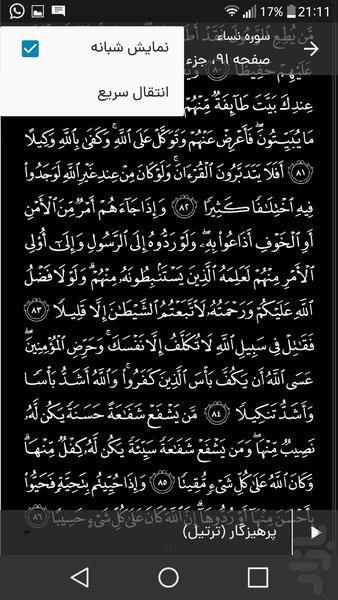 17% 21:11
سوره نساء
صفحه ۹۱، جزء
نمایش شبانه
انتقال سریع
عِندِكَ بَيَّتَ طَآئِفَةٌ مِّنْهُمْ
مَا يُبَيِّتُونَ ۖ فَأَعْرِضْ عَنْهُمْ وَتَوَكَّلْ عَلَى ٱللَّهِ ۚ وَكَفَىٰ بِٱللَّهِ وَكِيلًا
﴿٨١﴾ أَفَلَا يَتَدَبَّرُونَ ٱلْقُرْءَانَ ۚ وَلَوْ كَانَ مِنْ عِندِ غَيْرِ ٱللَّهِ لَوَجَدُوا۟
فِيهِ ٱخْتِلَـٰفًا كَثِيرًا ﴿٨٢﴾ وَإِذَا جَآءَهُمْ أَمْرٌ مِّنَ ٱلْأَمْنِ
أَوِ ٱلْخَوْفِ أَذَاعُوا۟ بِهِۦ ۖ وَلَوْ رَدُّوهُ إِلَى ٱلرَّسُولِ وَإِلَىٰٓ أُو۟لِى
ٱلْأَمْرِ مِنْهُمْ لَعَلِمَهُ ٱلَّذِينَ يَسْتَنۢبِطُونَهُۥ مِنْهُمْ ۗ وَلَوْلَا فَضْلُ
ٱللَّهِ عَلَيْكُمْ وَرَحْمَتُهُۥ لَٱتَّبَعْتُمُ ٱلشَّيْطَـٰنَ إِلَّا قَلِيلًا ﴿٨٣﴾
فَقَـٰتِلْ فِى سَبِيلِ ٱللَّهِ لَا تُكَلَّفُ إِلَّا نَفْسَكَ ۚ وَحَرِّضِ ٱلْمُؤْمِنِينَ ۖ
عَسَى ٱللَّهُ أَن يَكُفَّ بَأْسَ ٱلَّذِينَ كَفَرُوا۟ ۚ وَٱللَّهُ أَشَدُّ بَأْسًا
وَأَشَدُّ تَنكِيلًا ﴿٨٤﴾ مَّن يَشْفَعْ شَفَـٰعَةً حَسَنَةً يَكُن لَّهُۥ
نَصِيبٌ مِّنْهَا ۖ وَمَن يَشْفَعْ شَفَـٰعَةً سَيِّئَةً يَكُن لَّهُۥ كِفْلٌ مِّنْهَا ۗ
وَكَانَ ٱللَّهُ عَلَىٰ كُلِّ شَىْءٍ مُّقِيتًا ﴿٨٥﴾ وَإِذَا حُيِّيتُم بِتَحِيَّةٍ فَحَيُّوا۟
بِأَحْسَنَ مِنْهَآ أَوْ رُدُّوهَآ ۗ إِنَّ ٱللَّهَ كَانَ عَلَىٰ كُلِّ شَىْءٍ حَسِيبًا ﴿٨٦﴾
پرهیزگار (ترتیل)